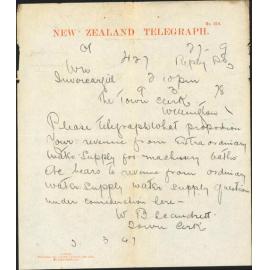 No. 104.
NEW ZEALAND TELEGRAPH.
427 27-9
Reply
Invercargill 2 10pm
9 3 78
The Town Clerk
Wellington
Please telegraph what proportion
Your revenue from Extraordinary
water supply for machinery baths
&c bears to revenue from ordinary
water supply water supply question
under consideration here—
W B Scandrett
Town Clerk
3. 3 47